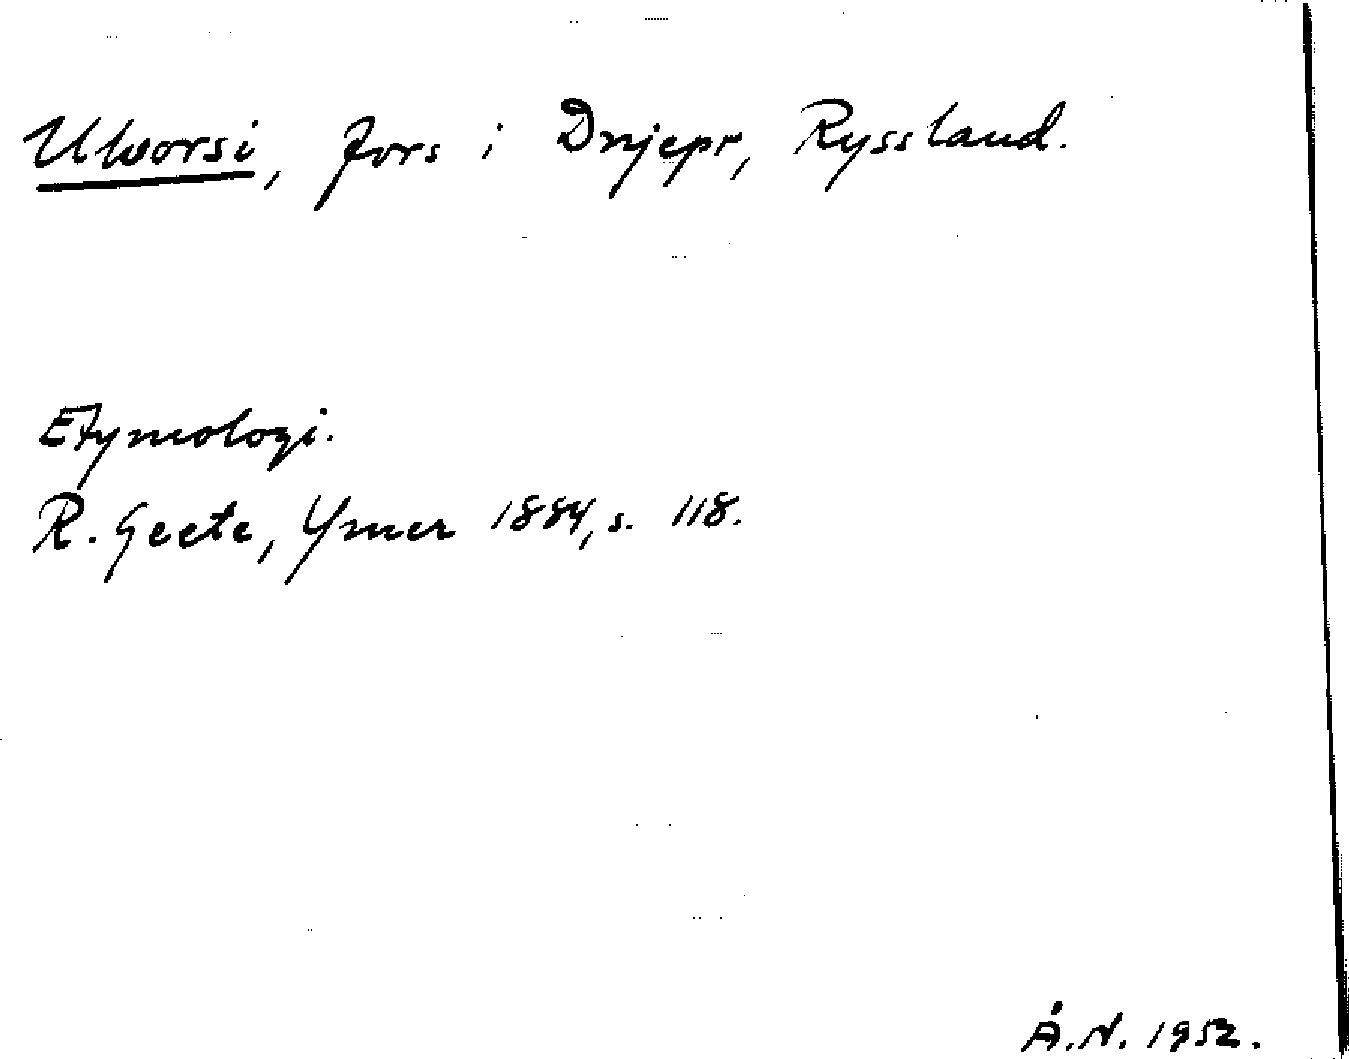 Ulworsi, fors i Dnjepr, Ryssland.
Etymologi.
R. Geete, Ymer 1884, s. 118.
Å.N. 1952.